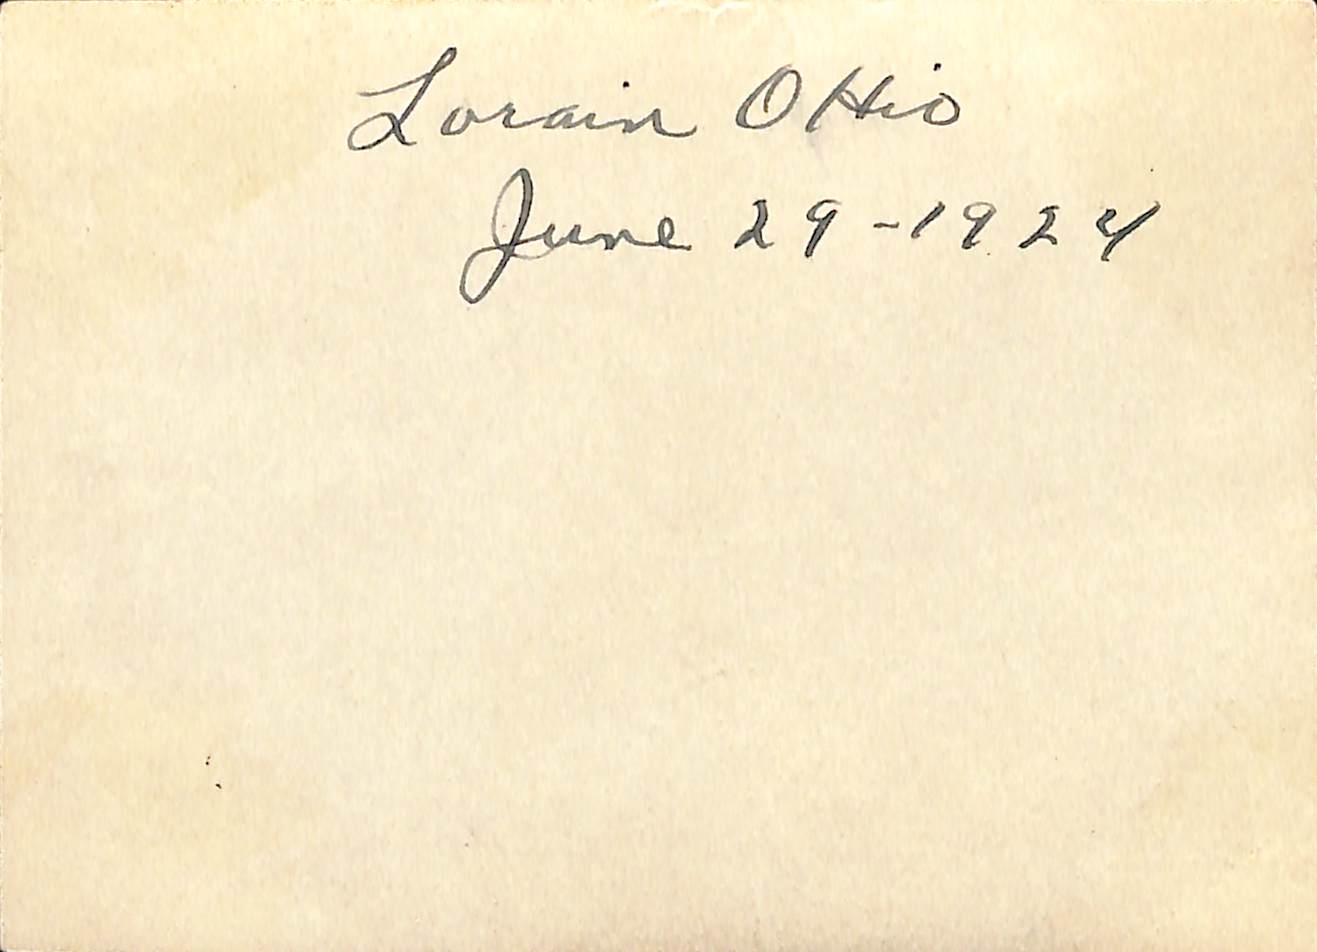 Lorain OHio
June 29-1924